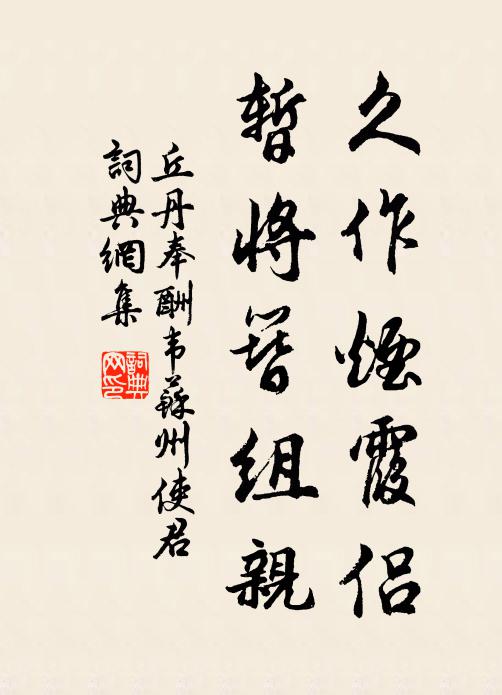 久作煙霞侶
暫將簪組親
丘丹奉酬韦蘇州使君
詞典網集
詞典網印